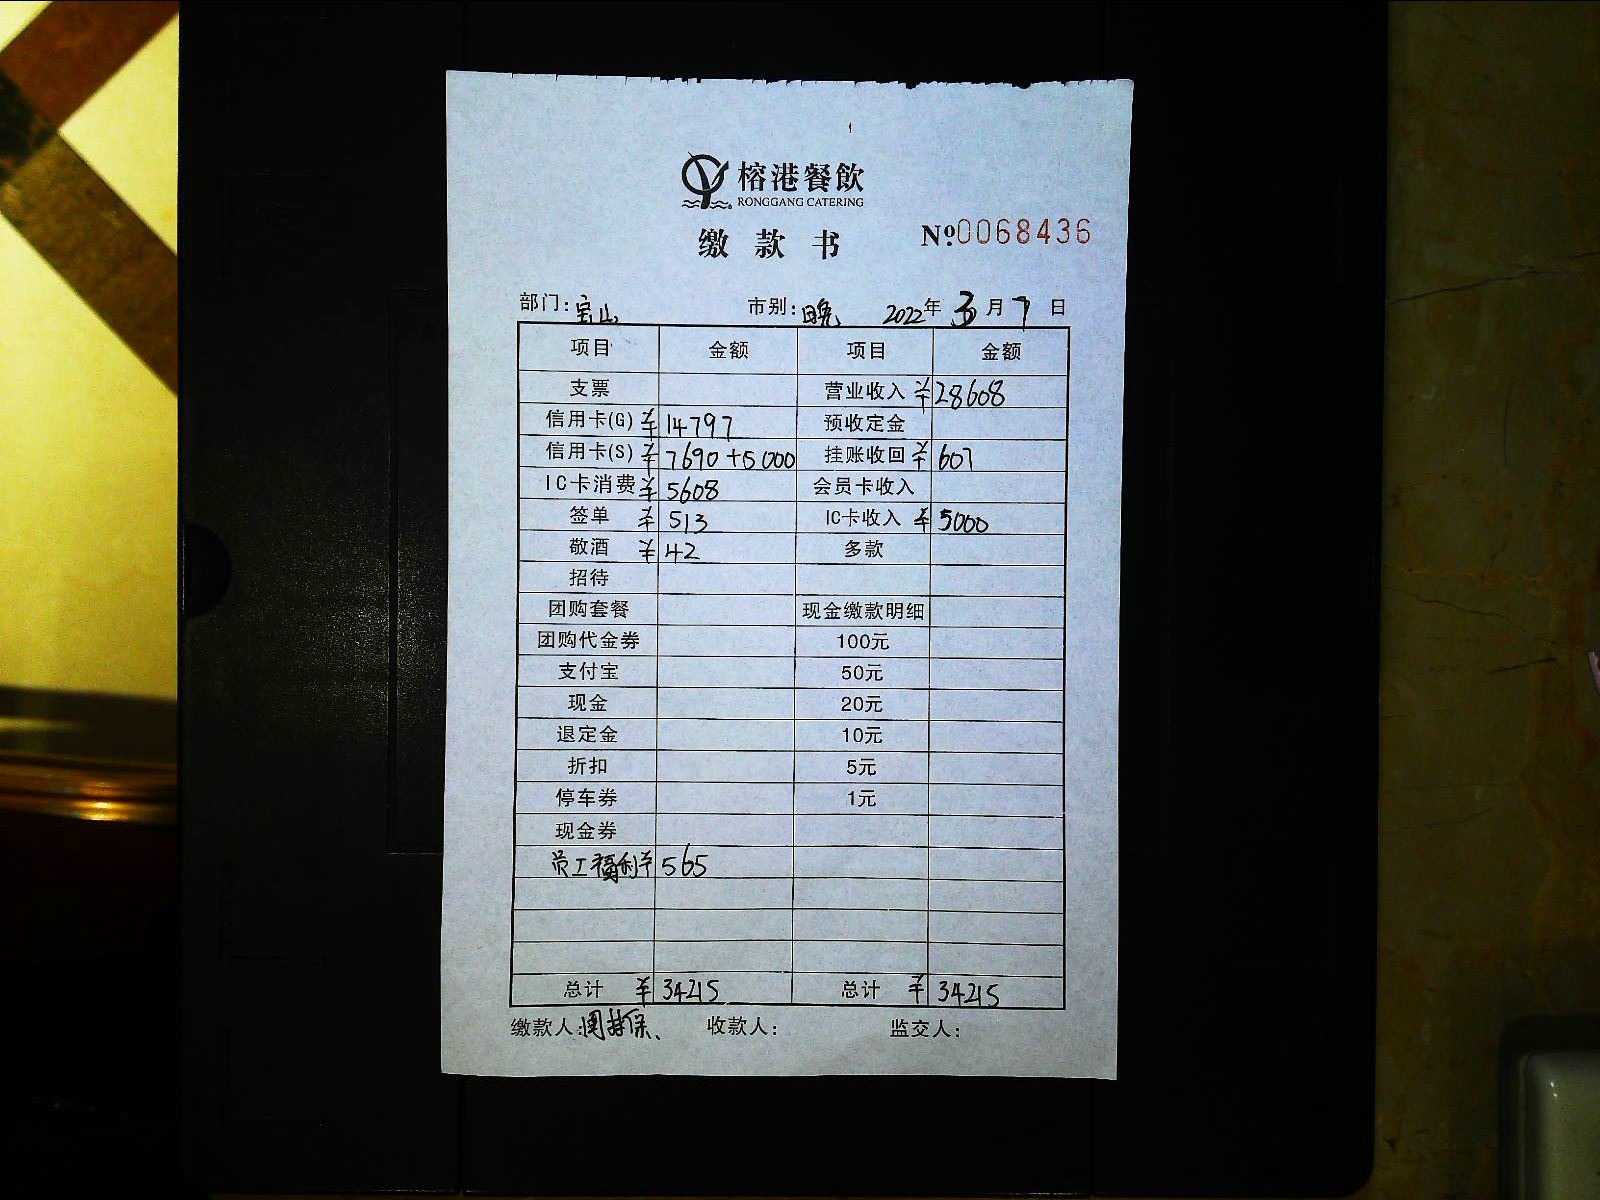 榕港餐飲
RONGGANG CATERING
缴款书 Nº0068436
部门:宝山 市别:晚 2022年3月7日
项目 金额 项目 金额
支票 营业收入 ¥28608
信用卡(G) ¥14797 预收定金
信用卡(S) ¥7690+5000 挂账收回 ¥607
IC卡消费 ¥5608 会员卡收入
签单 ¥513 IC卡收入 ¥5000
敬酒 ¥42 多款
招待
团购套餐 现金缴款明细
团购代金券 100元
支付宝 50元
现金 20元
退定金 10元
折扣 5元
停车券 1元
现金券
员工福利 ¥565
总计 ¥34215 总计 ¥34215
缴款人: 收款人: 监交人: